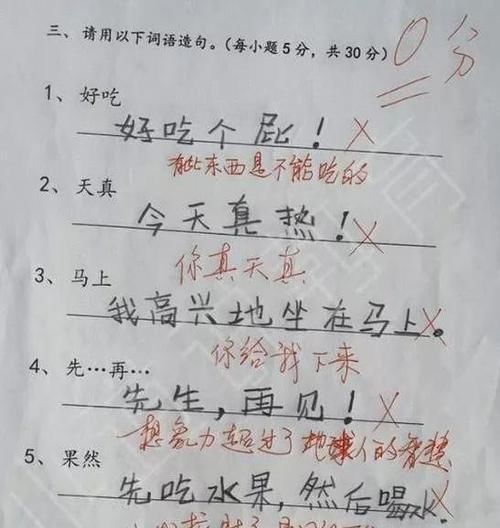 三、请用以下词语造句。(每小题5分，共30分)
0分
1、好吃
好吃个屁！
有些东西是不能吃的
2、天真
今天真热！
你真天真
3、马上
我高兴地坐在马上。
你给我下来
4、先…再…
先生，再见！
想象力超过了地球人的智慧
5、果然
先吃水果，然后喝水.